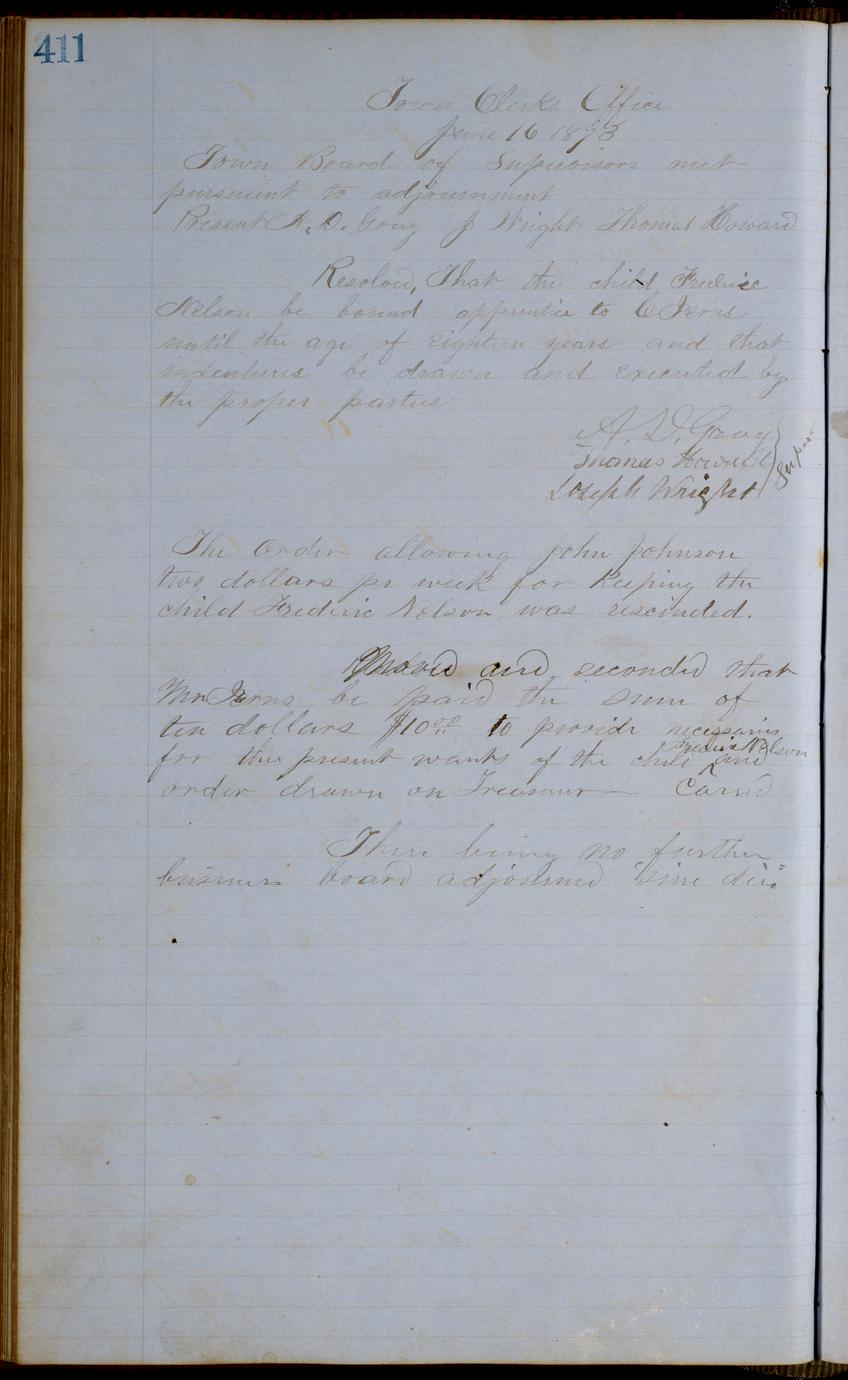 411
Town Clerks Office
June 16 1873
Town Board of Supervisors met
pursuant to adjournment
Present A. D. Gray J Wright Thomas Howard
Resolved, That the child Frederic
Nelson be bound apprentice to C
until the age of eighteen years and that
indentures be drawn and executed by
the proper parties
A. D. Gray
Thomas Howard
Joseph Wright
The Order allowing John Johnson
two dollars pr week for Keeping the
child Frederic Nelson was rescinded.
Moved and seconded that
Mr be paid the sum of
ten dollars $10.00 to provide necessaries
Frederic Nelson
for the present wants of the child and
order drawn on Treasurer — Carried
There being no further
business board adjourned "sine die"